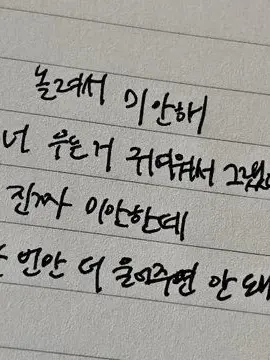 놀려서 미안해
너 우는거 귀여워서 그랬
진짜 미안한데
번만 더 울어주면 안 돼